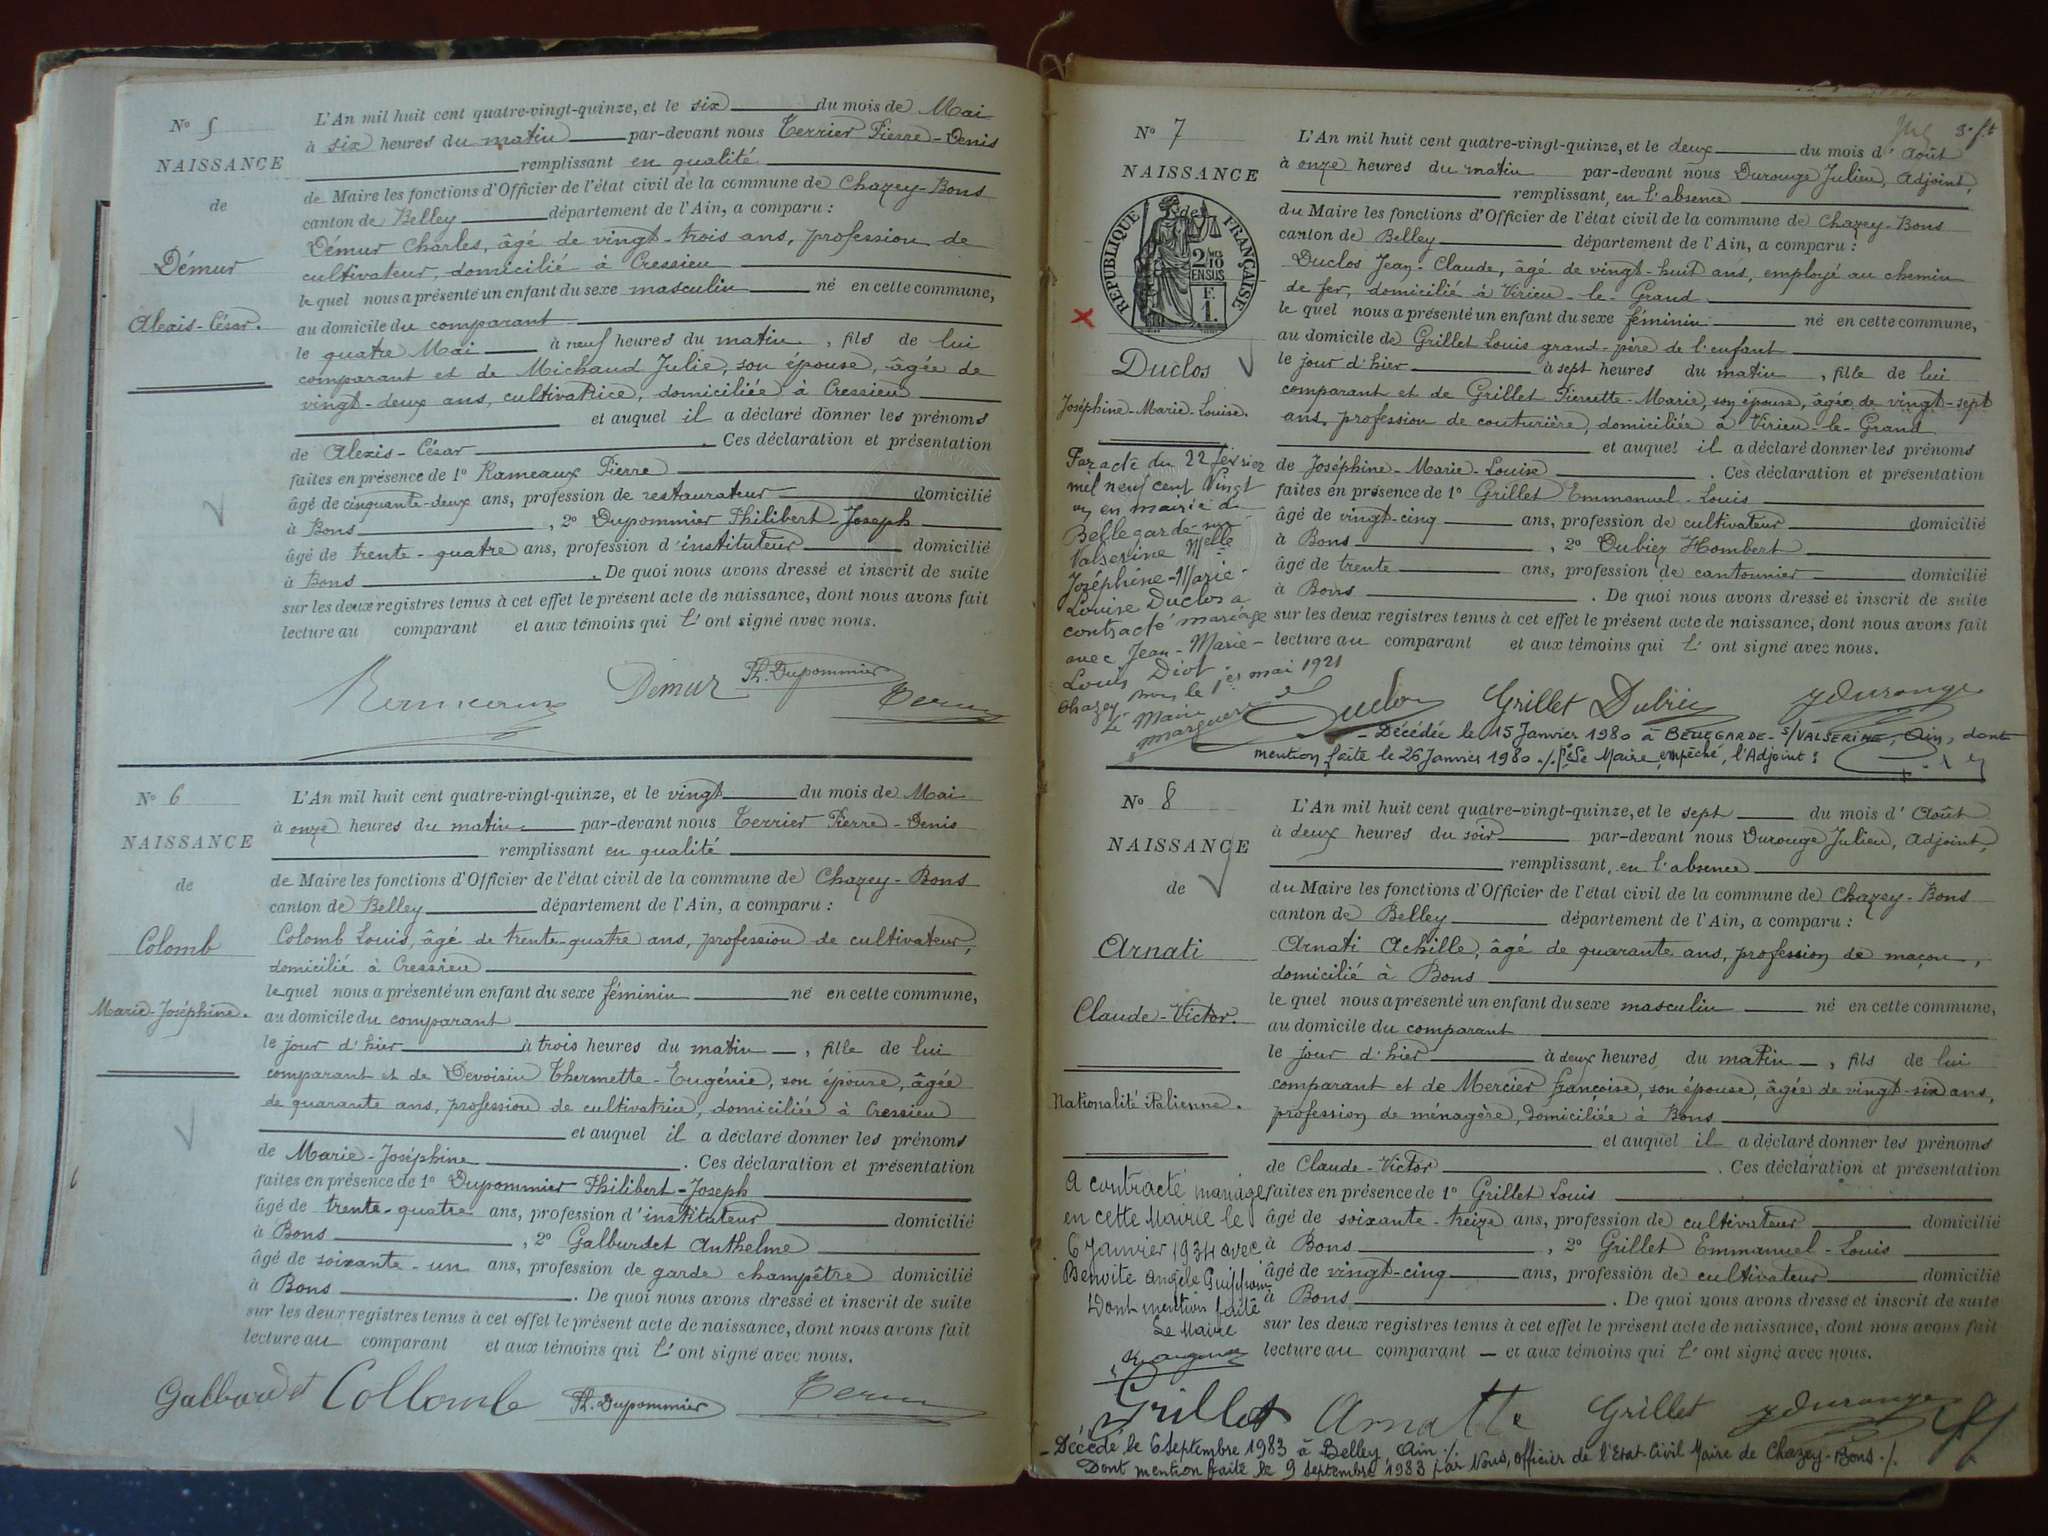 N° 5
NAISSANCE
de
Démur
Alexis-César.
L'An mil huit cent quatre-vingt-quinze, et le six du mois de Mai
à six heures du matin par-devant nous Terrier Pierre-Denis
remplissant en qualité
de Maire les fonctions d'Officier de l'état civil de la commune de Chazey-Bons
canton de Belley département de l'Ain, a comparu :
Démur Charles, âgé de vingt-trois ans, profession de
cultivateur, domicilié à Cressieu
le quel nous a présenté un enfant du sexe masculin né en cette commune,
au domicile du comparant
le quatre Mai à neuf heures du matin, fils de lui
comparant et de Michaud Julie, son épouse, âgée de
vingt-deux ans, cultivatrice, domiciliée à Cressieu
et auquel il a déclaré donner les prénoms
de Alexis-César. Ces déclaration et présentation
faites en présence de 1° Rameaux Pierre
âgé de cinquante-deux ans, profession de restaurateur domicilié
à Bons, 2° Dupommier Philibert-Joseph
âgé de trente-quatre ans, profession d'instituteur domicilié
à Bons. De quoi nous avons dressé et inscrit de suite
sur les deux registres tenus à cet effet le présent acte de naissance, dont nous avons fait
lecture au comparant et aux témoins qui l'ont signé avec nous.
Démur Ph. Dupommier
N° 6
NAISSANCE
de
Colomb
Marie-Joséphine.
L'An mil huit cent quatre-vingt-quinze, et le vingt du mois de Mai
à onze heures du matin par-devant nous Terrier Pierre-Denis
remplissant en qualité
de Maire les fonctions d'Officier de l'état civil de la commune de Chazey-Bons
canton de Belley département de l'Ain, a comparu :
Colomb Louis, âgé de trente-quatre ans, profession de cultivateur,
domicilié à Cressieu
le quel nous a présenté un enfant du sexe féminin né en cette commune,
au domicile du comparant
le jour d'hier à trois heures du matin, fille de lui
comparant et de Devoisin Thermette-Eugénie, son épouse, âgée
de quarante ans, profession de cultivatrice, domiciliée à Cressieu
et auquel il a déclaré donner les prénoms
de Marie-Joséphine. Ces déclaration et présentation
faites en présence de 1° Dupommier Philibert-Joseph
âgé de trente-quatre ans, profession d'instituteur domicilié
à Bons, 2° Galburdet Anthelme
âgé de soixante-un ans, profession de garde champêtre domicilié
à Bons. De quoi nous avons dressé et inscrit de suite
sur les deux registres tenus à cet effet le présent acte de naissance, dont nous avons fait
lecture au comparant et aux témoins qui l'ont signé avec nous.
Collombe Ph. Dupommier
N° 7
NAISSANCE
de
RÉPUBLIQUE FRANÇAISE
2/10 EN SUS
F. 1.
Duclos
Joséphine-Marie-Louise.
Par acte du 22 février
mil neuf cent vingt
un en mairie de
Bellegarde-sur
Valserine Melle
Joséphine-Marie-
Louise Duclos a
contracté mariage
avec Jean-Marie-
Louis Diot.
Chazey Bons le 1er mai 1921
Le Maire
L'An mil huit cent quatre-vingt-quinze, et le deux du mois d'Août
à onze heures du matin par-devant nous Durouge Julien, Adjoint,
remplissant, en l'absence
du Maire les fonctions d'Officier de l'état civil de la commune de Chazey-Bons
canton de Belley département de l'Ain, a comparu :
Duclos Jean-Claude, âgé de vingt-huit ans, employé au chemin
de fer, domicilié à Virieu-le-Grand
le quel nous a présenté un enfant du sexe féminin né en cette commune,
au domicile de Grillet Louis grand-père de l'enfant
le jour d'hier à sept heures du matin, fille de lui
comparant et de Grillet Pierrette-Marie, son épouse, âgée de vingt-sept
ans, profession de couturière, domiciliée à Virieu-le-Grand
et auquel il a déclaré donner les prénoms
de Joséphine-Marie-Louise. Ces déclaration et présentation
faites en présence de 1° Grillet Emmanuel-Louis
âgé de vingt-cinq ans, profession de cultivateur domicilié
à Bons, 2° Dubiez Hombert
âgé de trente ans, profession de cantonnier domicilié
à Bons. De quoi nous avons dressé et inscrit de suite
sur les deux registres tenus à cet effet le présent acte de naissance, dont nous avons fait
lecture au comparant et aux témoins qui l'ont signé avec nous.
Duclos Grillet J Durouge
- Décédée le 15 Janvier 1980 à BELLEGARDE-s/VALSERINE, Ain, dont
mention faite le 26 Janvier 1980 ./. Le Maire empêché, l'Adjoint :
N° 8
NAISSANCE
de
Arnati
Claude-Victor.
Nationalité italienne.
A contracté mariage
en cette Mairie le
6 Janvier 1934 avec
Benoite Angèle
Dont mention faite
Le Maire
L'An mil huit cent quatre-vingt-quinze, et le sept du mois d'Août
à deux heures du soir par-devant nous Durouge Julien, Adjoint,
remplissant, en l'absence
du Maire les fonctions d'Officier de l'état civil de la commune de Chazey-Bons
canton de Belley département de l'Ain, a comparu :
Arnati Achille, âgé de quarante ans, profession de maçon,
domicilié à Bons
le quel nous a présenté un enfant du sexe masculin né en cette commune,
au domicile du comparant
le jour d'hier à deux heures du matin, fils de lui
comparant et de Mercier Françoise, son épouse, âgée de vingt-six ans,
profession de ménagère, domiciliée à Bons
et auquel il a déclaré donner les prénoms
de Claude-Victor. Ces déclaration et présentation
faites en présence de 1° Grillet Louis
âgé de soixante-treize ans, profession de cultivateur domicilié
à Bons, 2° Grillet Emmanuel-Louis
âgé de vingt-cinq ans, profession de cultivateur domicilié
à Bons. De quoi nous avons dressé et inscrit de suite
sur les deux registres tenus à cet effet le présent acte de naissance, dont nous avons fait
lecture au comparant et aux témoins qui l'ont signé avec nous.
Grillet Grillet J Durouge
- Décédé le 6 Septembre 1983 à Belley, Ain ./.
Dont mention faite le 9 septembre 1983 par Nous, officier de l'Etat-Civil Maire de Chazey-Bons ./.